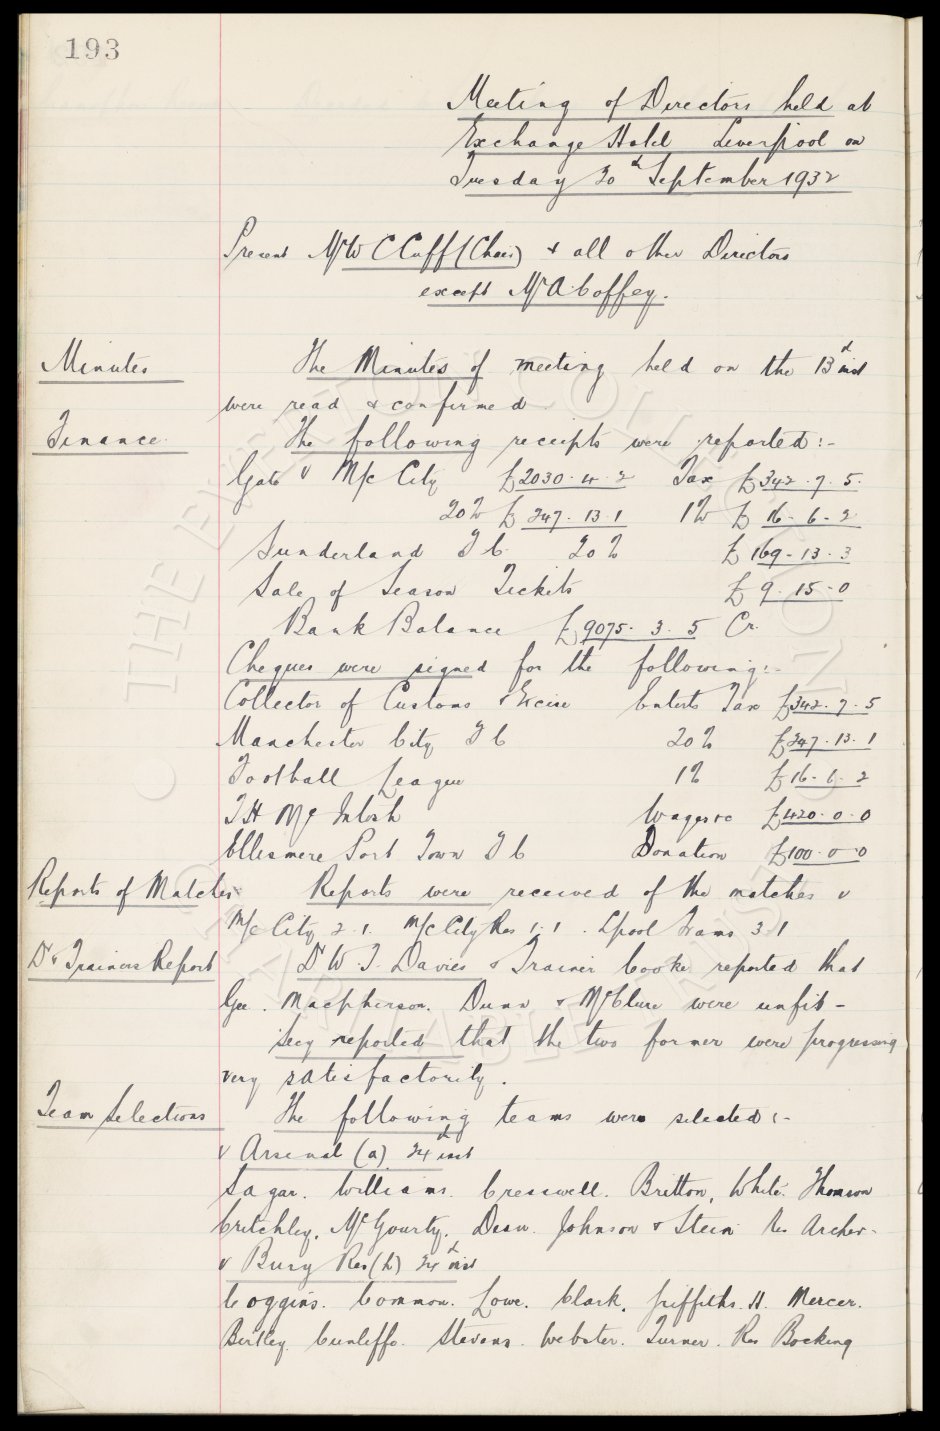 193
Meeting of Directors held at
Exchange Hotel Liverpool on
Tuesday 20th September 1932
Present Mr W C Cuff (Chair) & all other Directors
except Mr A Coffey.
Minutes
The Minutes of meeting held on the 13th inst
were read & confirmed.
Finance.
The following receipts were reported:-
Gate v M/c City £2030-4-2 Tax £342.7.5.
20% £347-13-1 1% £16-6-2
Sunderland F C 20% £169-13-3
Sale of Season Tickets £9-15-0
Bank Balance £9075-3-5 Cr.
Cheques were signed for the following:-
Collector of Customs & Excise Enterts Tax £342-7-5
Manchester City F C 20% £347-13-1
Football League 1% £16-6-2
T H McIntosh Wages &c £420-0-0
Ellesmere Port Town F C Donation £100-0-0
Reports of Matches
Reports were received of the matches v
M/c City 2.1. M/c City Res 1.1. Lpool Trams 3-1
Dr & Trainers Report
Dr W. F. Davies & Trainer Cooke reported that
Gee. Macpherson. Dunn & McClure were unfit-
Secy reported that the two former were progressing
very satisfactorily.
Team Selections
The following teams were selected:-
v Arsenal (a) 24th inst
Sagar. Williams. Cresswell. Britton, White. Thomson
Critchley, McGourty. Dean. Johnson & Stein Res Archer-
v Bury Res (h) 24th inst
Coggins. Common. Lowe. Clark. Griffiths. H. Mercer.
Birtley. Cunliffe. Stevens. Webster. Turner. Res Bocking
© THE EVERTON COLLECTION
CHARITABLE TRUST